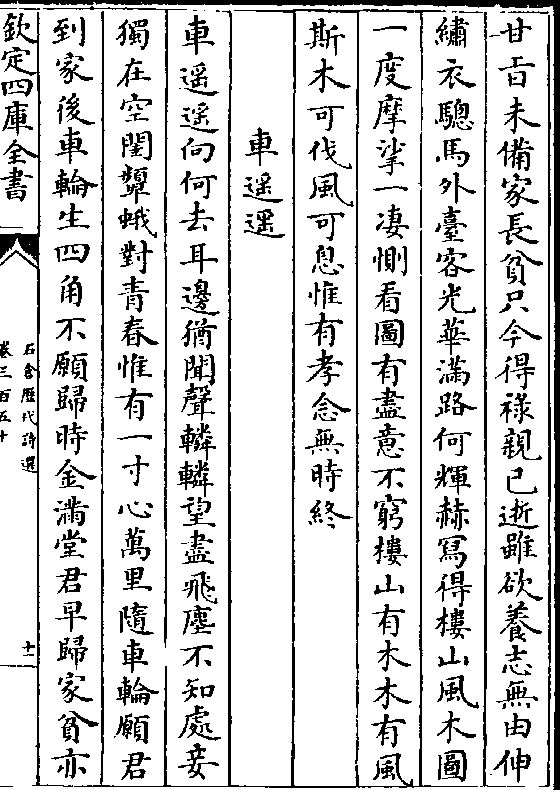 甘旨未備家長貧只今得禄親已逝雖欲養志無由伸
繡衣驄馬外臺客光華滿路何輝赫冩得樓山風木圖
一度摩挲一凄惻看圖有盡意不窮樓山有木木有風
斯木可伐風可息惟有孝念無時終
車遥遥
車遥遥向何去耳邊猶聞聲轔轔望盡飛塵不知處妾
獨在空閨顰蛾對青春惟有一寸心萬里隨車輪願君
到家後車輪生四角不願歸時金滿堂君早歸家貧亦
欽定四庫全書
石倉歷代詩選
卷三百五十
十一